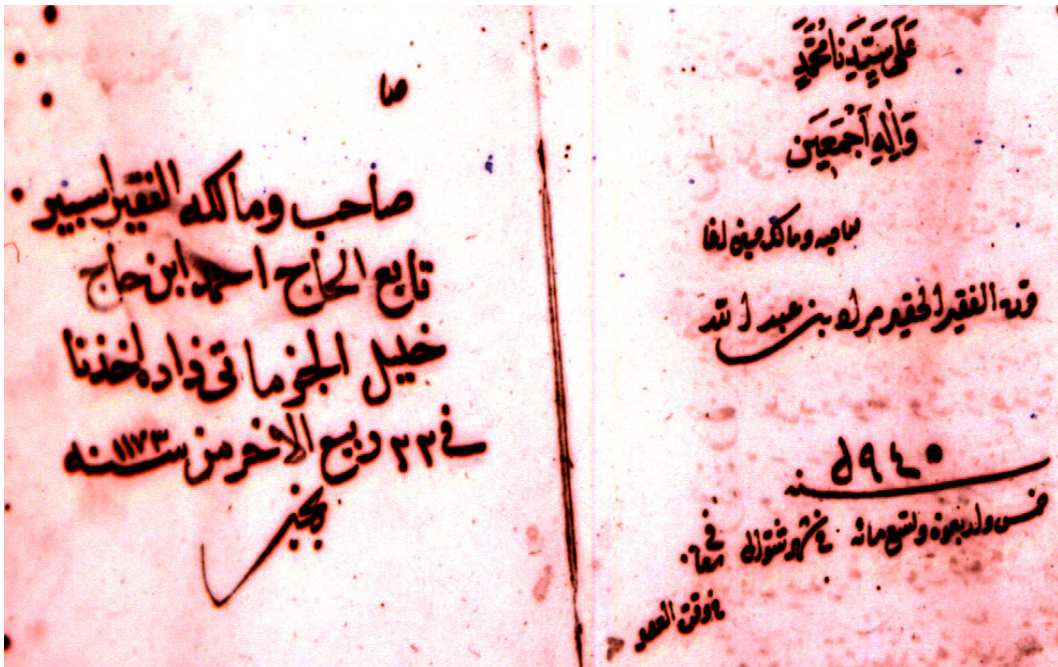 عَلَى سَيِّدِنَا مُحَمَّدٍ
وَاٰلِهِ اَجْمَعِينَ
صاحبه ومالكه
الفقير الحقير مراد بن عبد الله
سنه ٩٤٥
خمس واربعون وتسع مائه في شهر شوال في
في وقت العصر
صا
صاحب ومالكه الفقير اسبير
تابع الحاج احمد ابن حاج
خليل
في ٢٢ ربيع الاخر من سنه ١١٧٣
بخير